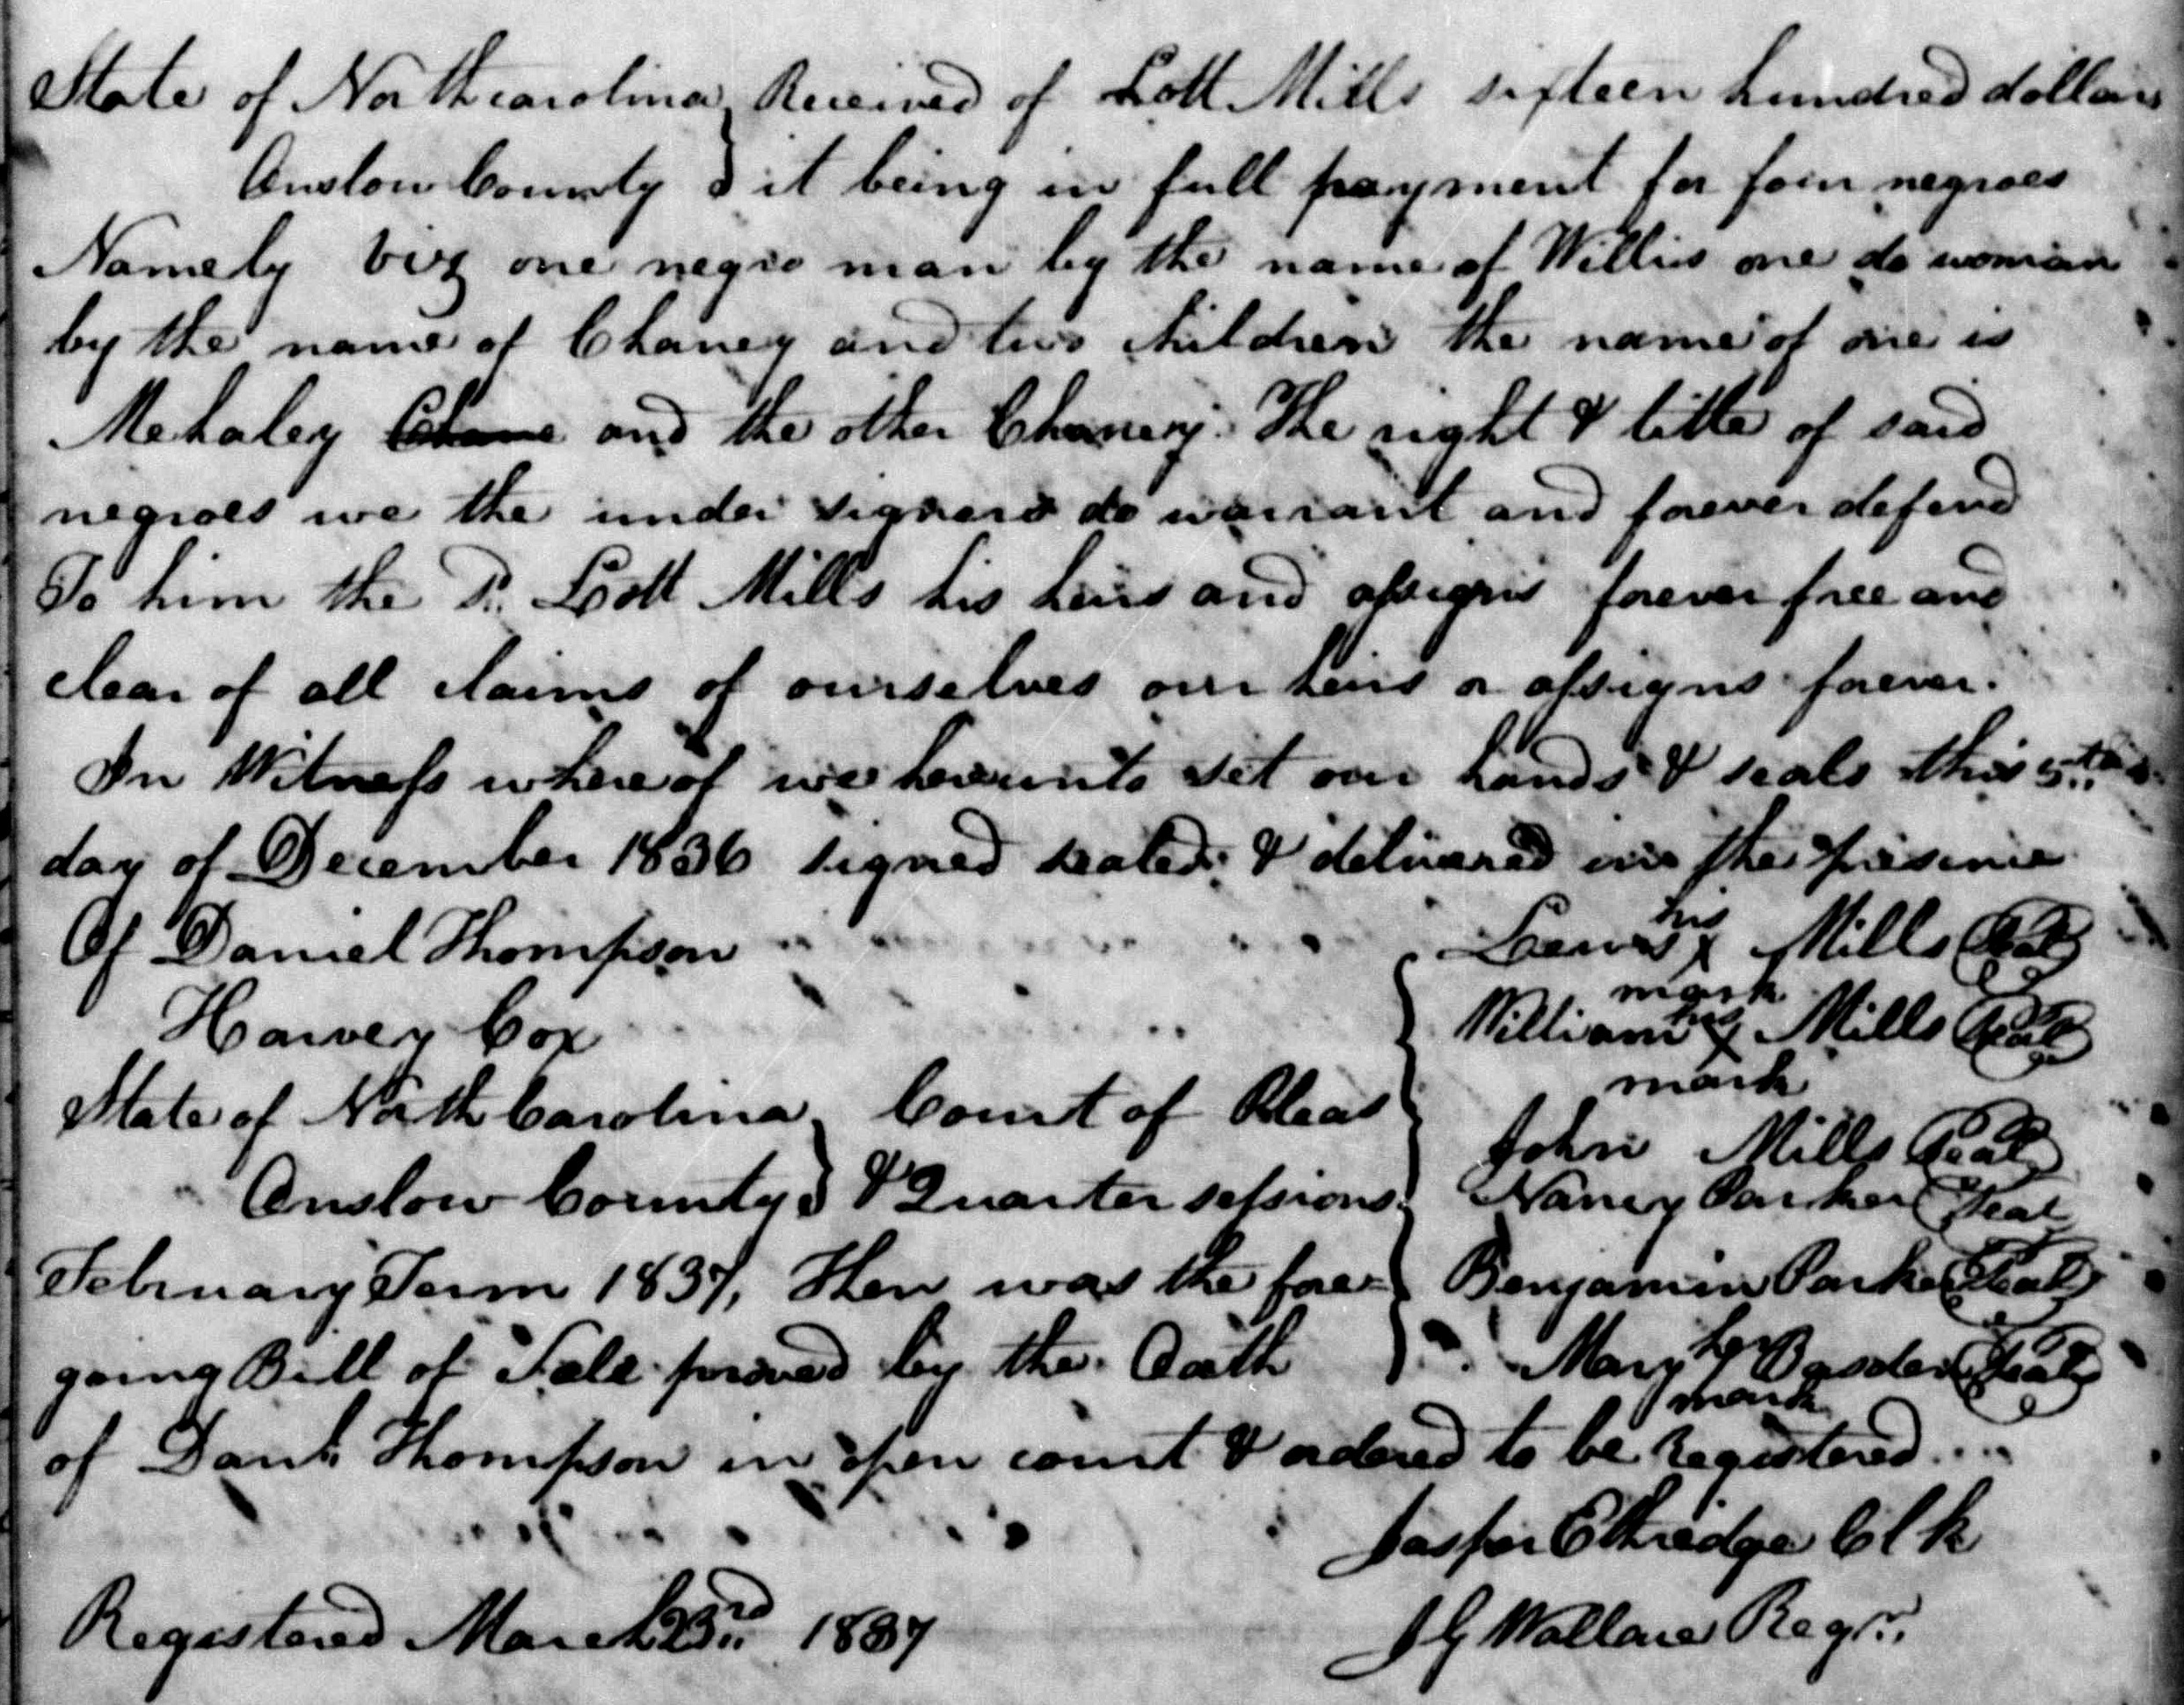 State of North carolina } Received of Lott Mills sixteen hundred dollars
Onslow County } it being in full payment for four negroes
Namely viz one negro man by the name of Willis one do woman
by the name of Chaney and two children the name of one is
Mehaley Chane and the other Chaney. The right & title of said
negroes we the under signers do warrant and forever defend
To him the Sd. Lott Mills his heirs and assigns forever free and
clear of all claims of ourselves our heirs or assigns forever.
In Witness where of we hereunto set our hands & seals this 5th
day of December 1836 signed sealed & delivered in the presence
Of Daniel Thompson
Harvey Cox
Lewis his X mark Mills Seal
William his X mark Mills Seal
John Mills Seal
Nancy Parker Seal
Benjamin Parker Seal
Mary her X mark Basden Seal
State of North Carolina } Court of Pleas
Onslow County } & Quarter sessions
February Term 1837, Then was the fore-
going Bill of Sale proved by the Oath
of Danl. Thompson in open court & ordered to be Registered.
Jasper Etheredge Clk
Registered March 23rd 1837
J G Wallace Regr.